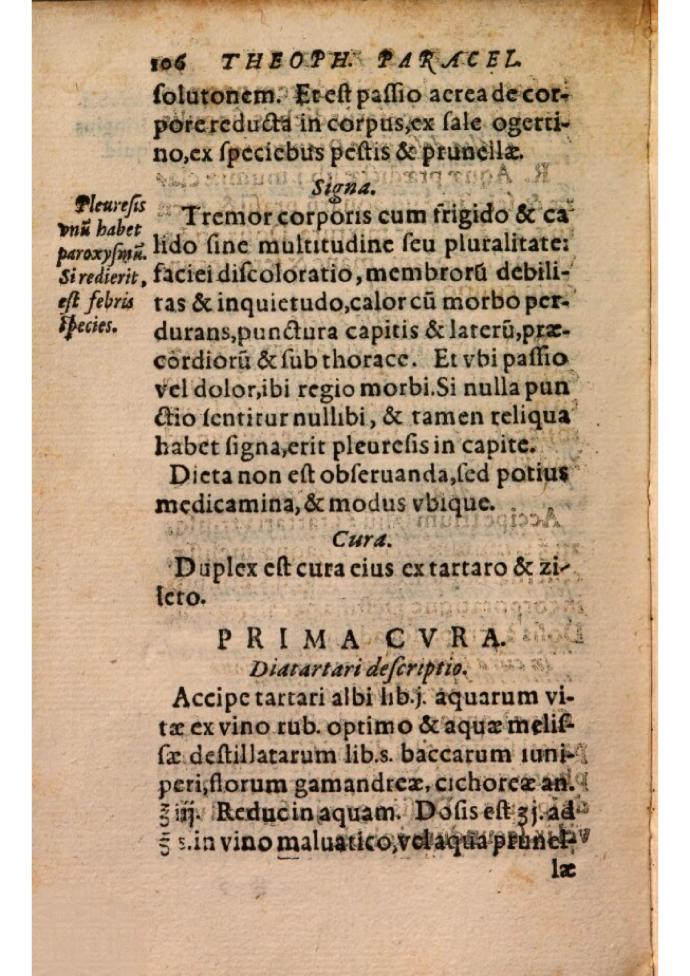 106 THEOPH. PARACEL.
ſolutonem. Et eſt paſſio aerea de cor-
pore reducta in corpus, ex ſale ogerti-
no, ex ſpeciebus peſtis & prunellæ.
Signa.
Pleureſis
vnũ habet
paroxyſmũ.
Si redierit,
eſt febris
ſpecies.
Tremor corporis cum frigido & ca
lido ſine multitudine ſeu pluralitate:
faciei diſcoloratio, membrorũ debili-
tas & inquietudo, calor cũ morbo per-
durans, punctura capitis & laterũ, præ-
cordiorũ & ſub thorace. Et vbi paſſio
vel dolor, ibi regio morbi. Si nulla pun
ctio ſentitur nullibi, & tamen reliqua
habet ſigna, erit pleureſis in capite.
Dieta non eſt obſeruanda, ſed potius
medicamina, & modus vbique.
Cura.
Duplex eſt cura eius ex tartaro & zi-
leto.
PRIMA CVRA.
Diatartari deſcriptio.
Accipe tartari albi lib.j. aquarum vi-
tæ ex vino rub. optimo & aquæ meliſ-
ſæ deſtillatarum lib.s. baccarum iuni-
peri, florum gamandreæ, cichoreæ an.
℥ iiij. Reduc in aquam. Doſis eſt ʒj. ad
℥ s. in vino maluatico, vel aqua prunel-
læ